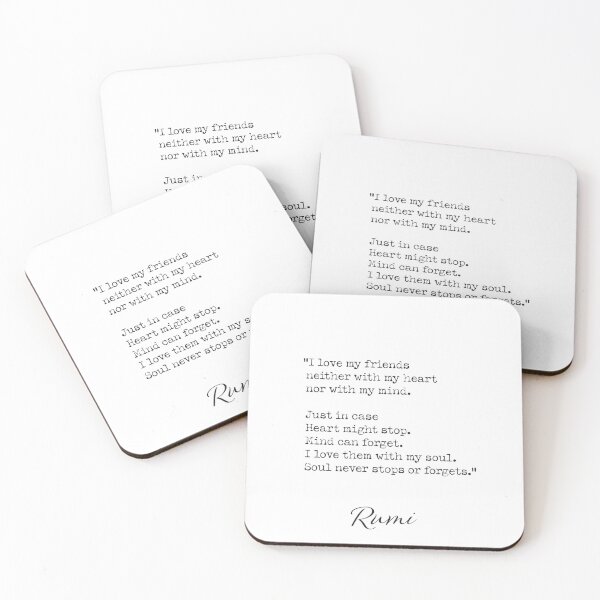 "I love my friends
neither with my heart
nor with my mind.
Just in
soul.
forget
"I love my friends
neither with my heart
nor with my mind.
Just in case
Heart might stop.
Mind can forget.
I love them with my soul.
Soul never stops or forgets."
"I love my friends
neither with my heart
nor with my mind.
Just in case
Heart might stop.
Mind can forget.
I love them with my so
Soul never stops or f
Rum
"I love my friends
neither with my heart
nor with my mind.
Just in case
Heart might stop.
Mind can forget.
I love them with my soul.
Soul never stops or forgets."
Rumi